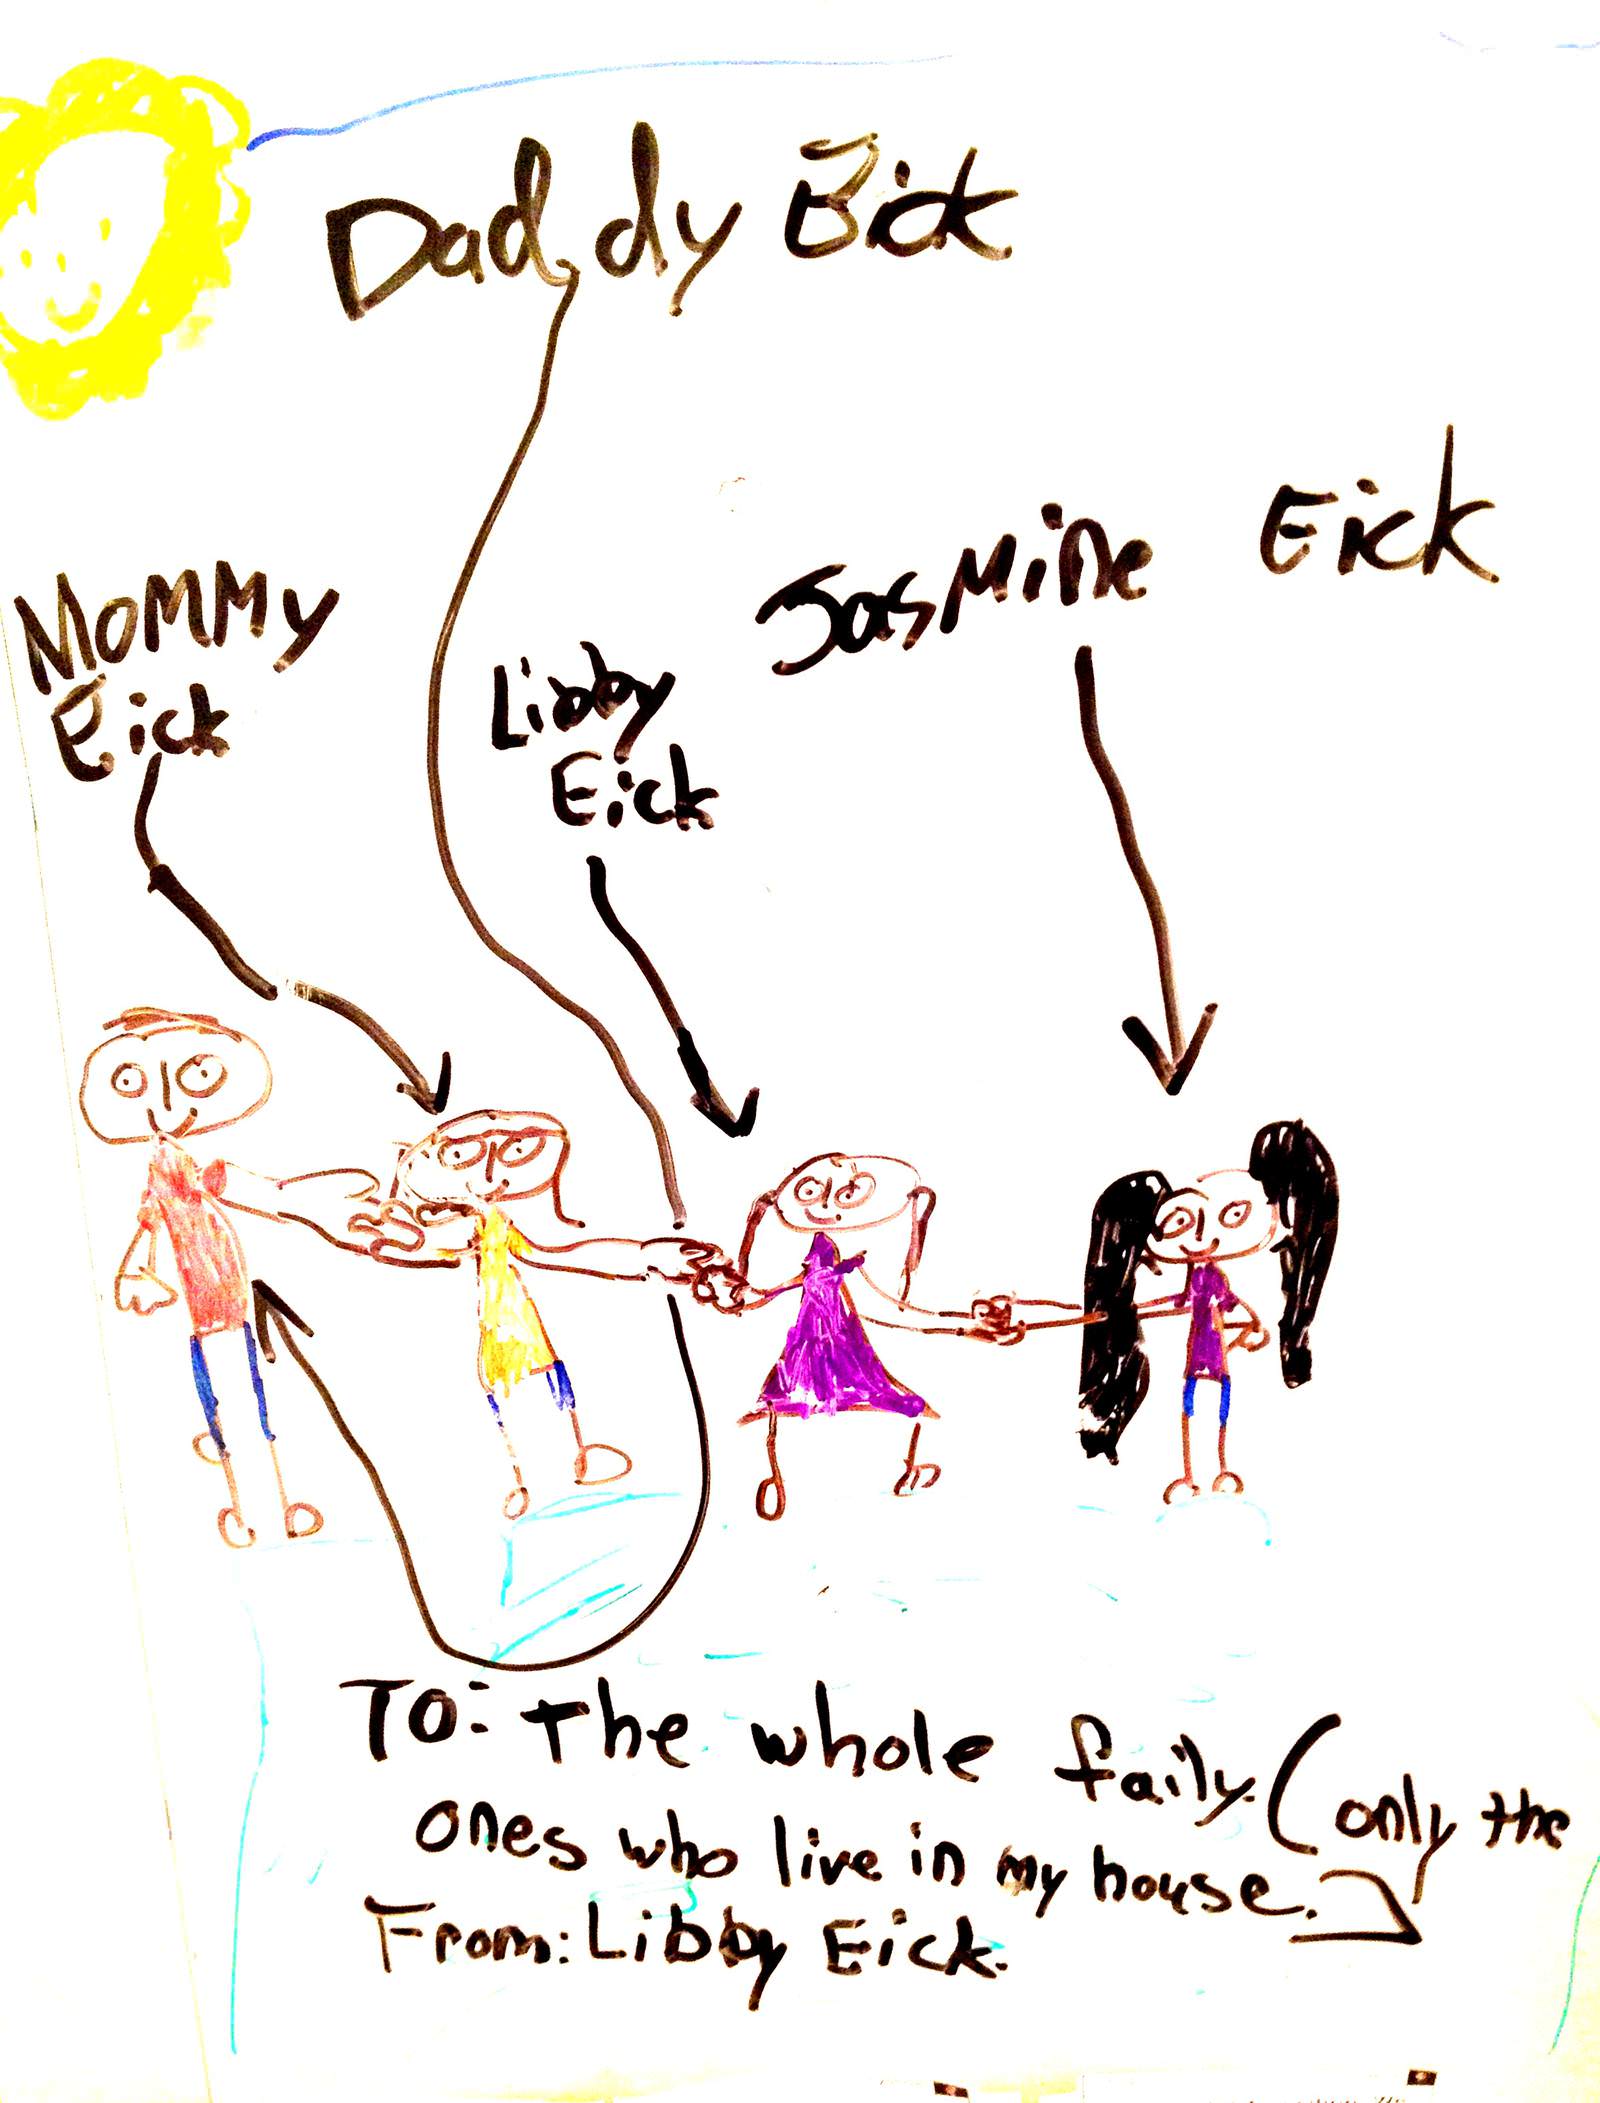 Daddy Eick
Jasmine Eick
Mommy
Eick
Libby
Eick
To: The whole faily. (only the
ones who live in my house.)
From: Libby Eick.